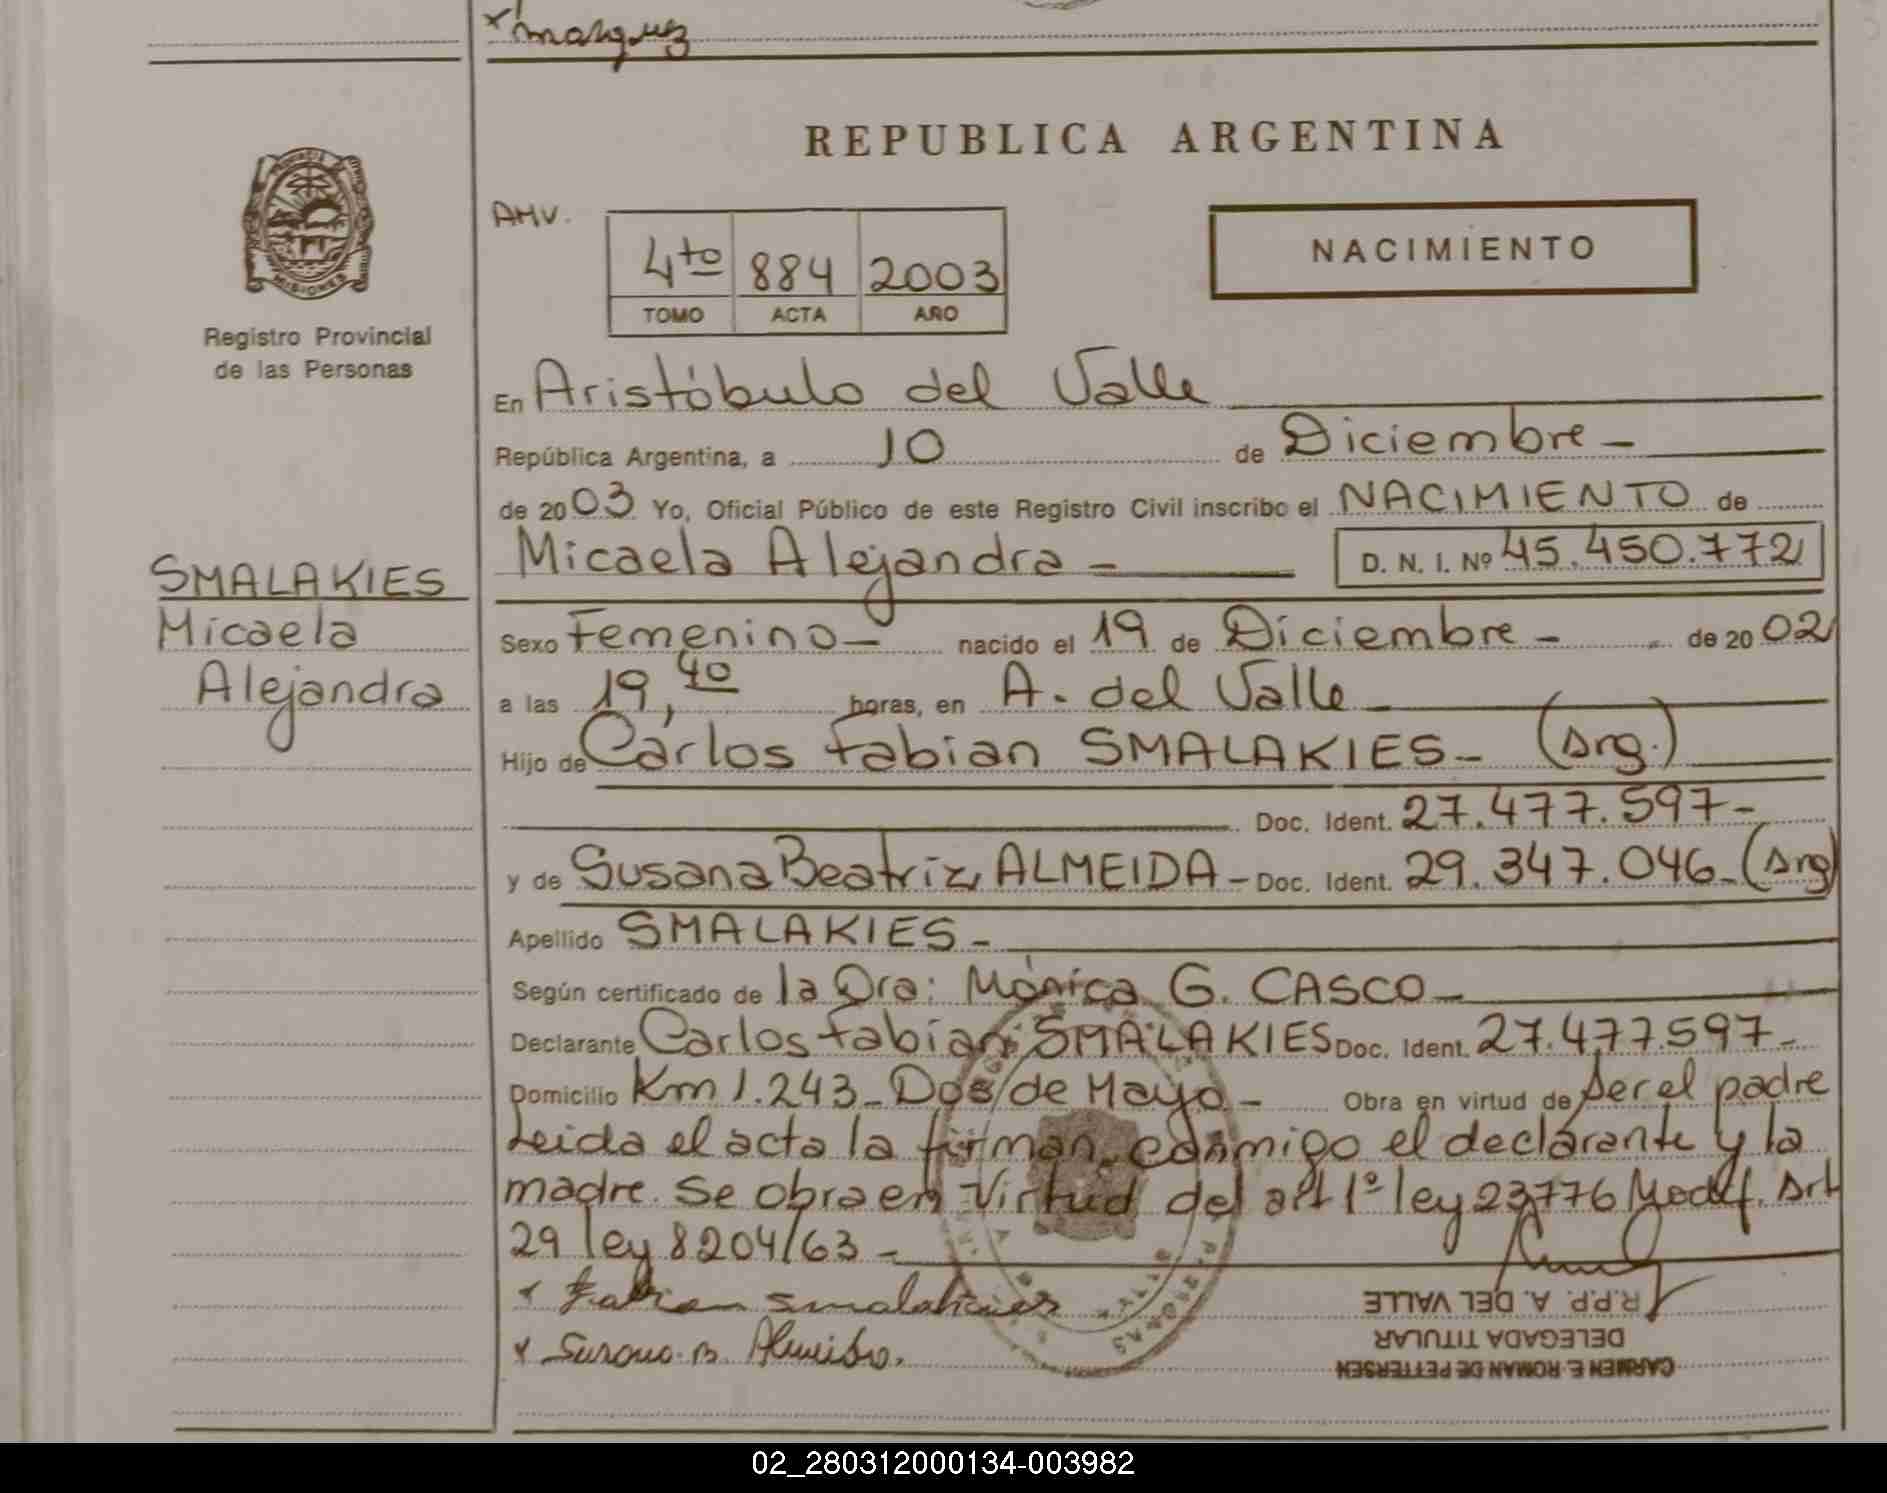 marquez
REPUBLICA ARGENTINA
AMV.
NACIMIENTO
4to 884 2003
TOMO ACTA AÑO
MISIONES
Registro Provincial
de las Personas
En Aristóbulo del Valle
República Argentina, a 10 de Diciembre -
de 2003 Yo, Oficial Público de este Registro Civil inscribo el NACIMIENTO de
Micaela Alejandra - D. N. I. Nº 45.450.772
SMALAKIES
Micaela
Alejandra
Sexo Femenino - nacido el 19 de Diciembre - de 2002
a las 19,40 horas, en A. del Valle -
Hijo de Carlos Fabian SMALAKIES - (Arg.)
Doc. Ident. 27.477.597 -
y de Susana Beatriz ALMEIDA - Doc. Ident. 29.347.046 - (Arg)
Apellido SMALAKIES -
Según certificado de la Dra: Mónica G. CASCO -
Declarante Carlos Fabian SMALAKIES Doc. Ident. 27.477.597 -
Domicilio Km 1.243 - Dos de Mayo - Obra en virtud de ser el padre
Leida el acta la firman conmigo el declarante y la
madre. Se obra en virtud del art 1º ley 23776 Modif. Art
29 ley 8204/63 -
x Fabian smalakies
x Susana B. Almeida.
R.P.P. A. DEL VALLE
DELEGADA TITULAR
CARMEN E. ROMAN DE PETTERSEN
02_280312000134-003982